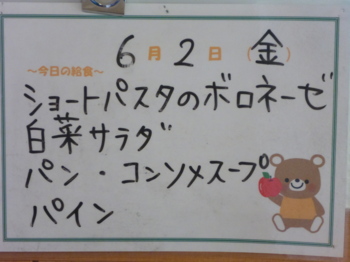 6月2日(金)
～今日の給食～
ショートパスタのボロネーゼ
白菜サラダ
パン・コンソメスープ
パイン